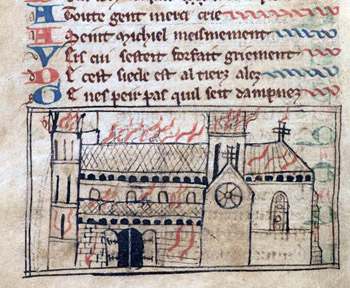 A toute gent merci crie
A Seint Michiel meismement
cui sesteit forfait griement
De cest siecle est al tierz alez
Ge nespeir pas quil seit dampnez